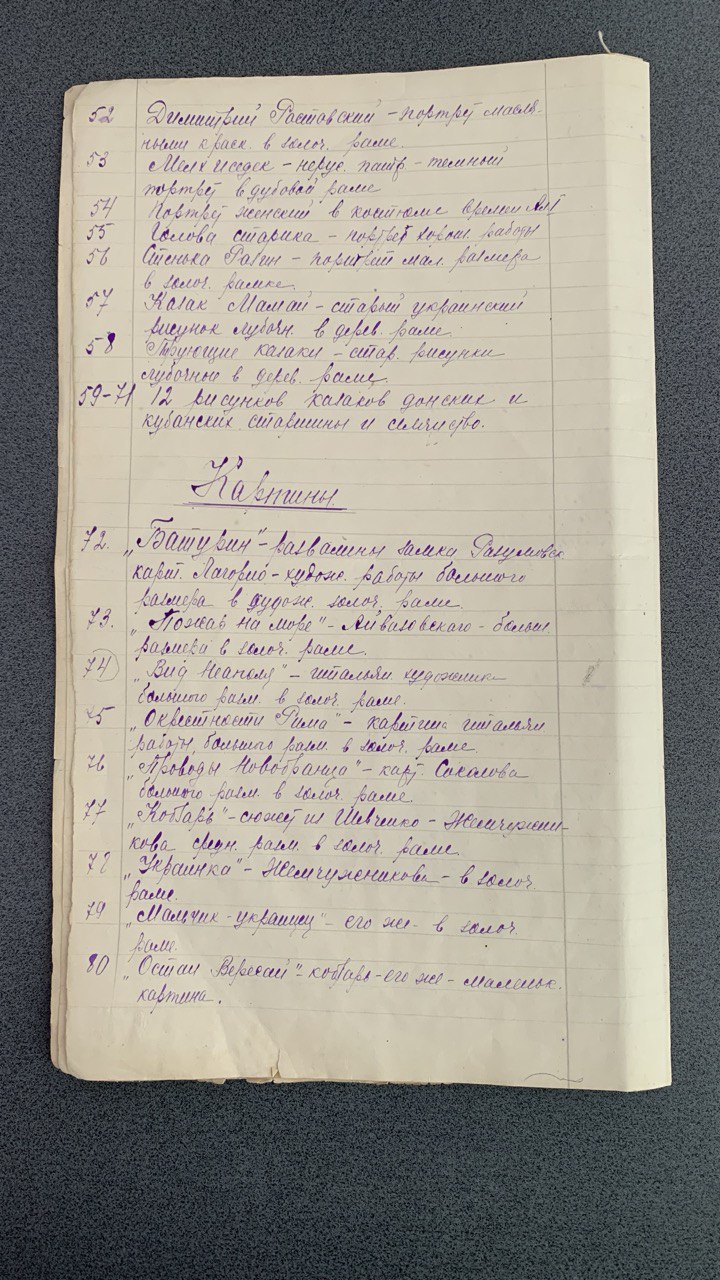 52 Димитрий Ростовский - портрет масля-
ными краск. в золоч. раме.
53 Мелхиседек - - темный
портрет в дубовой раме
54 Портрет женский в костюме времен
55 Голова старика - портрет хорош. работы
56 Стенька Разин - портрет мал. размера
в золоч. рамке.
57 Казак Мамай - старый украинский
рисунок лубочн. в дерев. раме.
58 казаки - стар. рисунки
лубочные в дерев. раме.
59-71 12 рисунков казаков донских и
кубанских старшины и
Картины.
72. „Батурин" - развалины замка Разумовск.
карт. Лагорио - худож. работы большого
размера в худож. золоч. раме.
73. „Пожар на море" - Айвазовскаго - больш.
размера в золоч. раме.
74 „Вид Неаполя" - итальян художника
большого разм. в золоч. раме.
75 „Окрестности Рима" - картина итальян
работы большого разм. в золоч. раме.
76 „Проводы Новобранца" - карт. Соколова
большого разм. в золоч. раме.
77 „Кобзарь" - сюжет из Шевченко - Жемчужни-
кова средн. разм. в золоч. раме.
78 „Украинка" - Жемчужникова - в золоч.
раме.
79 „Мальчик-украинец" - его же - в золоч.
раме.
80 „Остап Вересай" - кобзарь - его же - маленьк.
картина.